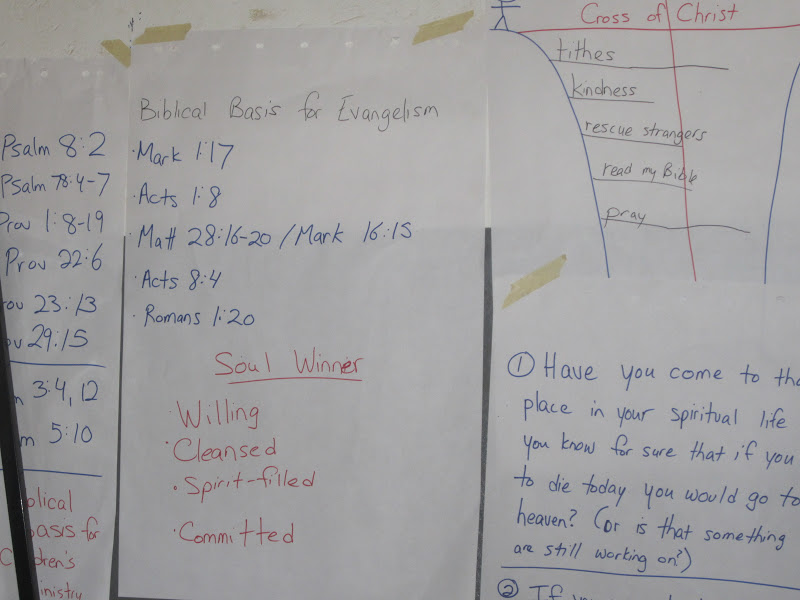 Psalm 8:2
Psalm 78:4-7
Prov 1:8-19
Prov 22:6
ov 23:13
v 29:15
3:4, 12
m 5:10
plical
basis for
Children's
inistry
Biblical Basis for Evangelism
· Mark 1:17
· Acts 1:8
· Matt 28:16-20 / Mark 16:15
· Acts 8:4
· Romans 1:20
Soul Winner
· Willing
· Cleansed
· Spirit-filled
· Committed
Cross of Christ
tithes
kindness
rescue strangers
read my Bible
pray
① Have you come to tha
place in your spiritual life
you know for sure that if you
to die today you would go to
heaven? (or is that something
are still working on?)
② If you